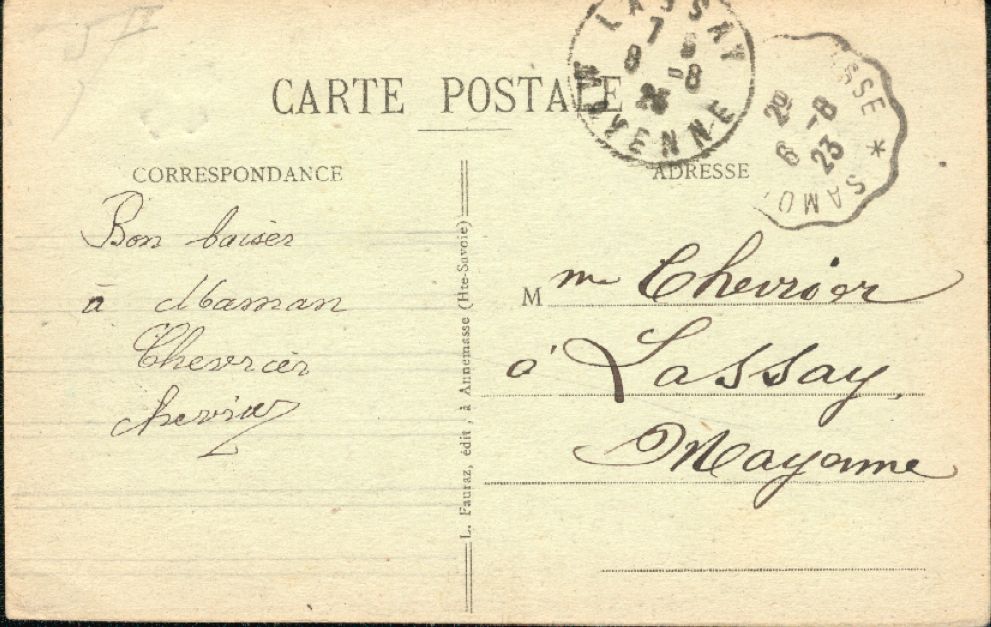 J II
LASSAY
7
8 -8
23
MAYENNE
ASSE * SAMO
20
6 -8
23
CARTE POSTALE
CORRESPONDANCE
ADRESSE
Bon baiser
à Maman
Chevrier
chevrier
L. Fauraz, édit., à Annemasse (Hte-Savoie)
M me Chevrier
à Lassay,
Mayenne